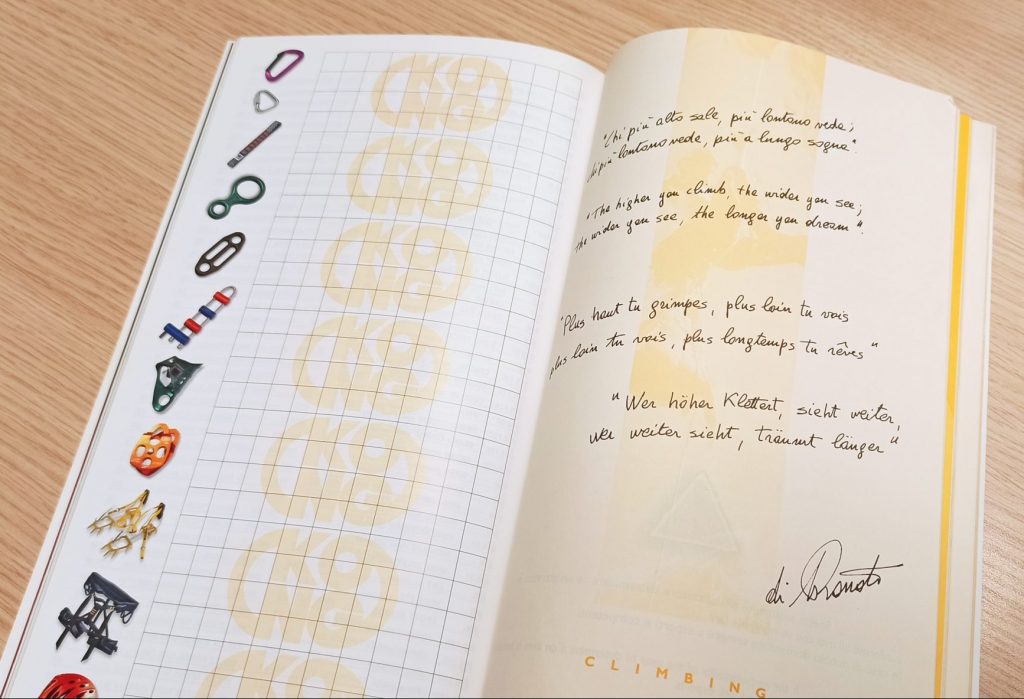 KONG
KONG
KONG
KONG
KONG
KONG
"Chi più alto sale, più lontano vede;
chi più lontano vede, più a lungo sogna".
"The higher you climb, the wider you see;
the wider you see, the longer you dream".
"Plus haut tu grimpes, plus loin tu vois
plus loin tu vois, plus longtemps tu rêves"
"Wer höher Klettert, sieht weiter,
wer weiter sieht, träumt länger"
di
CLIMBING